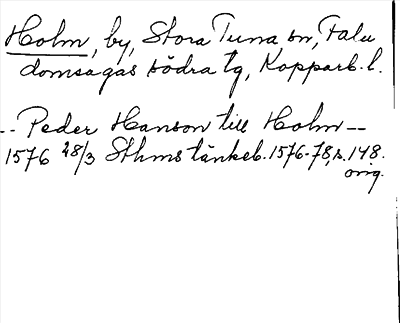 Holm, by, Stora Tuna sn, Falu
domsagas södra tg, Kopparb. l.
-- Peder Hanson till Holm --
1576 28/3 Sthms tänkeb. 1576-78, s. 148.
orig.